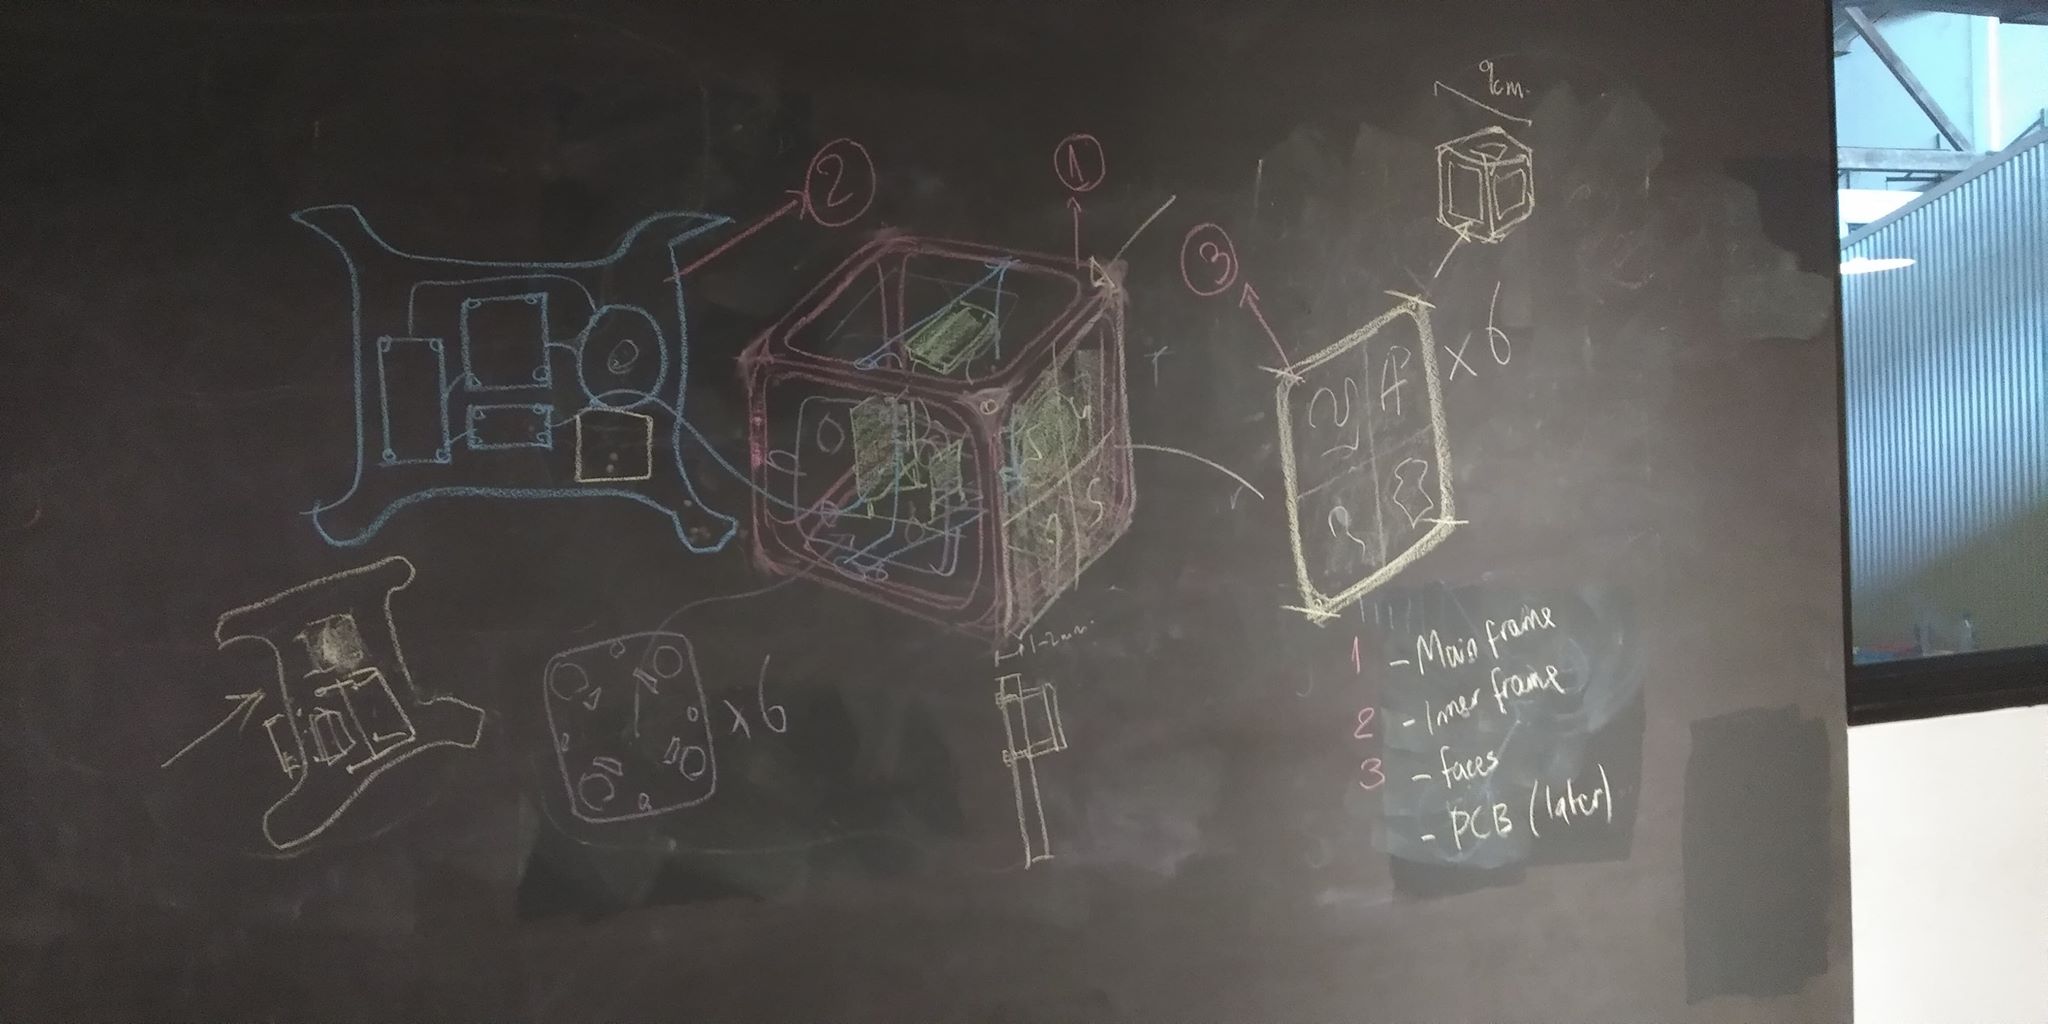 9cm.
2
1
3
x 6
x 6
1-2mm.
1 - Main frame
2 - Inner frame
3 - faces
- PCB (later)